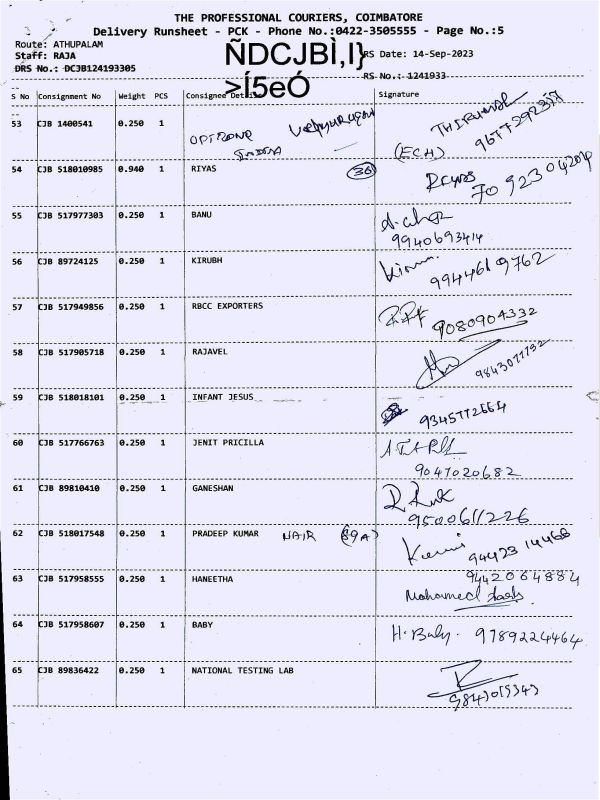 THE PROFESSIONAL COURIERS, COIMBATORE
Delivery Runsheet - PCK - Phone No.:0422-3505555 - Page No.:5
Route: ATHUPALAM
Staff: RAJA
ÑDCJBÌ,I}
RS Date: 14-Sep-2023
DRS No.: DCJB124193305
>Í5eÓ
RS No.: 1241933
S No Consignment No Weight PCS Consignee Signature
53 CJB 1400541 0.250 1
(ECH)
54 CJB 518010985 0.940 1 RIYAS 36
55 CJB 517977303 0.250 1 BANU
9940693414
56 CJB 89724125 0.250 1 KIRUBH
9944619762
57 CJB 517949856 0.250 1 RBCC EXPORTERS
9080904332
58 CJB 517905718 0.250 1 RAJAVEL
59 CJB 518018101 0.250 1 INFANT JESUS
60 CJB 517766763 0.250 1 JENIT PRICILLA
9047020682
61 CJB 89810410 0.250 1 GANESHAN
9500611226
62 CJB 518017548 0.250 1 PRADEEP KUMAR NAIR (89A)
9442314468
63 CJB 517958555 0.250 1 HANEETHA 9442064884
Mohamed
64 CJB 517958607 0.250 1 BABY H. Baby. 9789224464
65 CJB 89836422 0.250 1 NATIONAL TESTING LAB